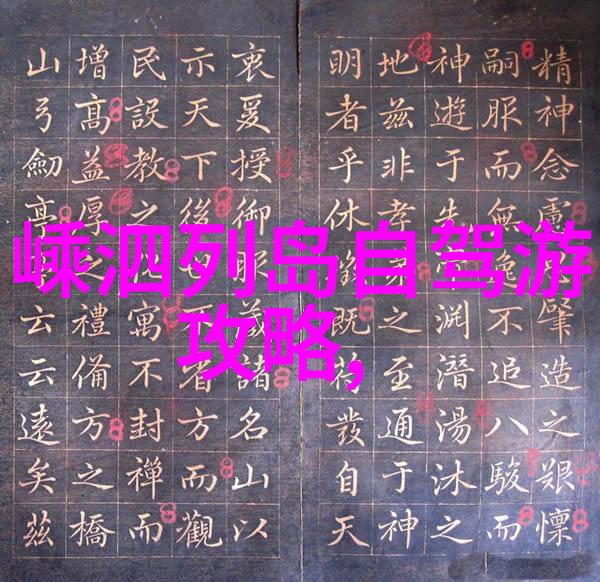 嵊泗列岛自驾游
攻略,
精神念慮肇造之艱懍
嗣服而無逸不追八駿而
神遊于先淵潛湯沐之
地茲非孝之至通于神
明者乎休既發自天
衷爰授御服諸名山以
示天下後不省方而觀
民設教之寓不封禪而
增高益厚之禮備方之橋
山弓劍亭云云遠矣茲